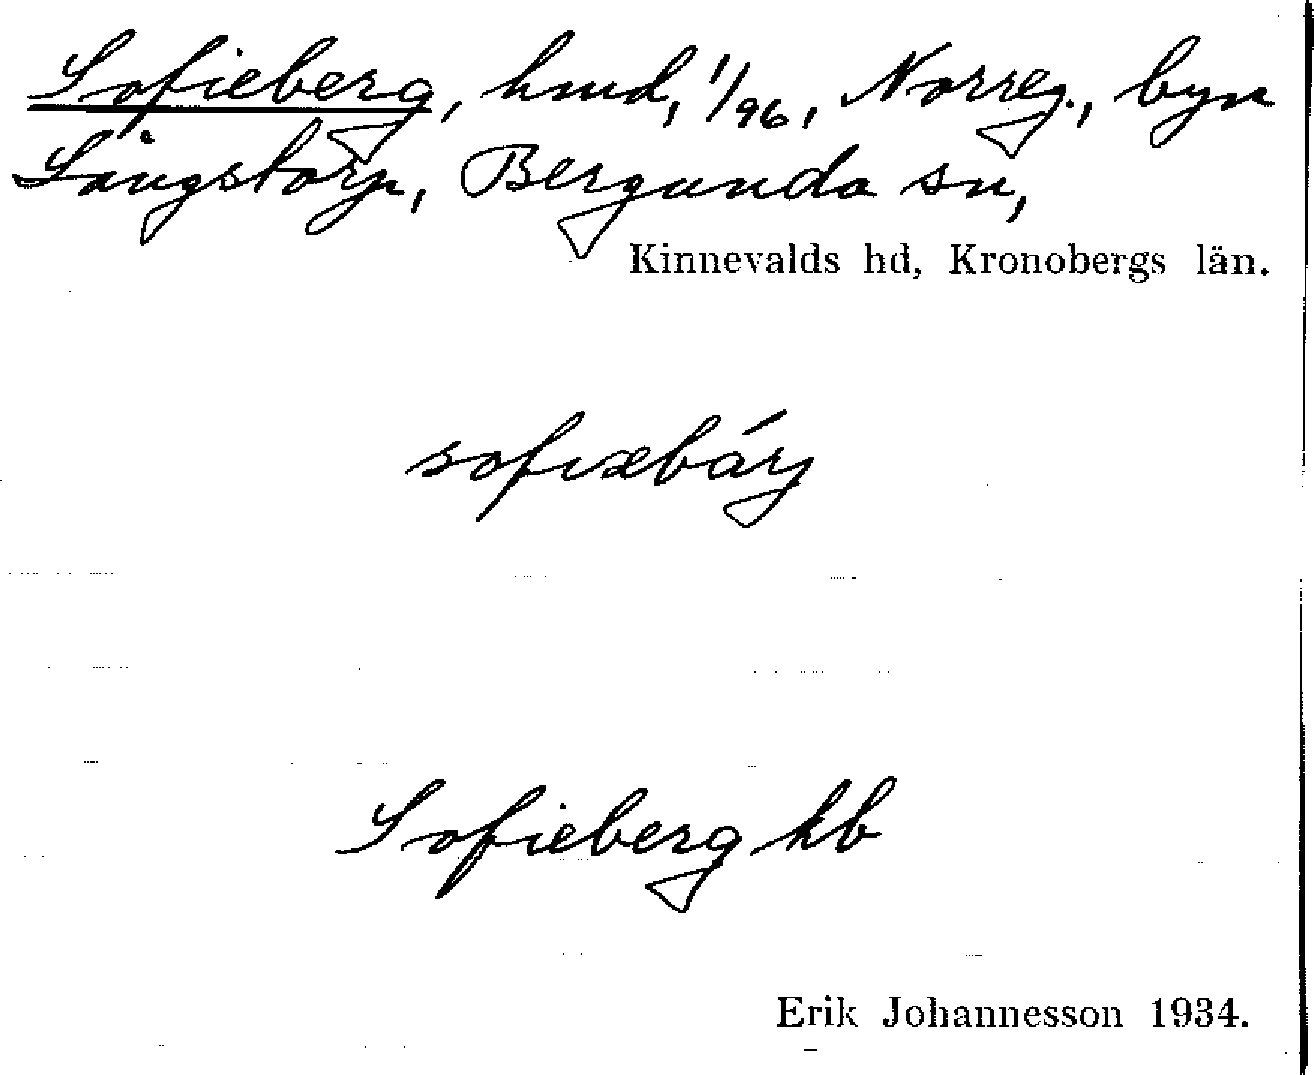 Sofieberg, hmd, 1/96, Norreg., byn
Långstorp, Bergunda sn,
Kinnevalds hd, Kronobergs län.
sofiæbárj
Sofieberg kb
Erik Johannesson 1934.